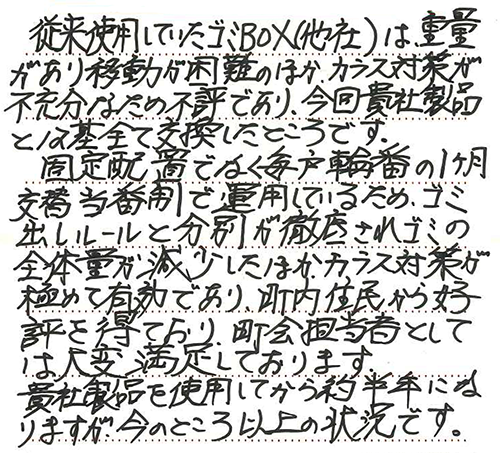 従来使用していたゴミBOX(他社)は、重量
があり移動が困難のほか、カラス対策が
不充分なため不評であり、今回貴社製品
と12基全て交換したところです。
固定配置でなく毎戸輪番の1ヶ月
交替当番制で運用しているため、ゴミ
出しルールと分別が徹底されゴミの
全体量が減少したほか、カラス対策が
極めて有効であり、町内住民から好
評を得ており、町会担当者として
は大変満足しております
貴社製品を使用してから約半年にな
りますが、今のところ以上の状況です。